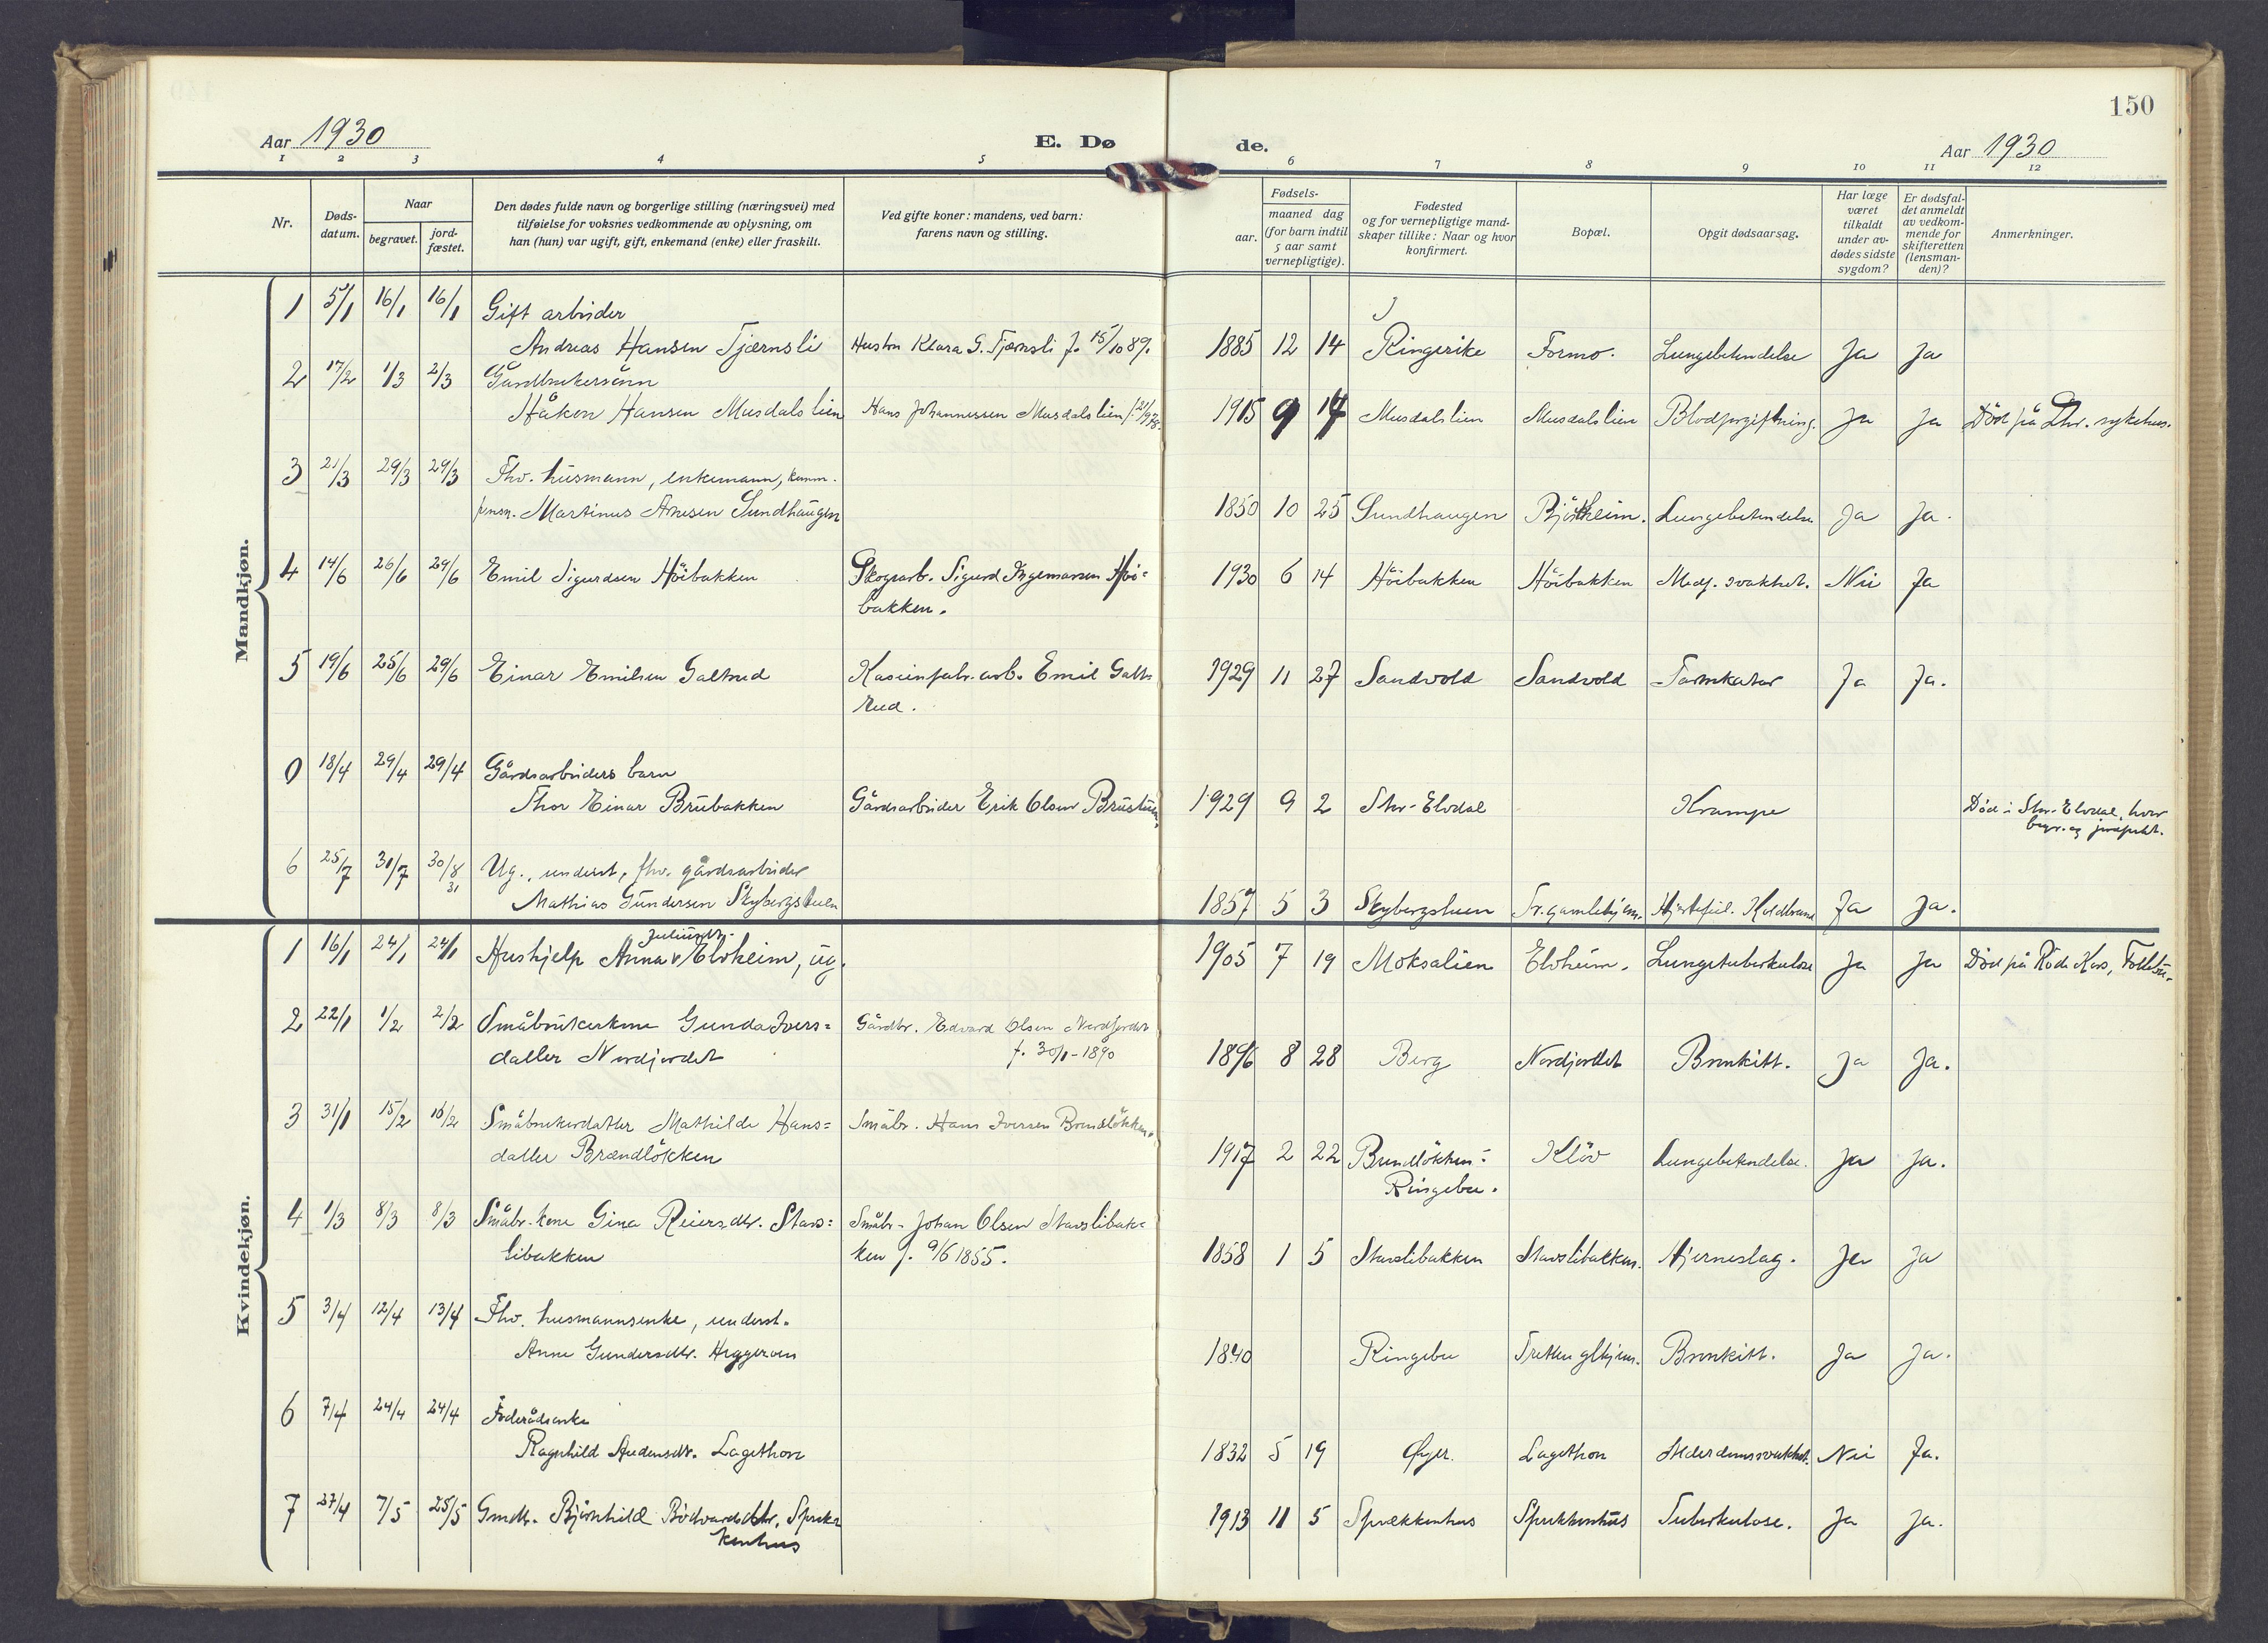 150
Aar 1930
E. Dø
de.
Aar 1930
1 2 3 4 5 6 7 8 9 10 11 12
Nr.
Døds-
datum.
Naar
begravet.
jord-
fæstet.
Den dødes fulde navn og borgerlige stilling (næringsvei) med
tilføielse for voksnes vedkommende av oplysning, om
han (hun) var ugift, gift, enkemand (enke) eller fraskilt.
Ved gifte koner: mandens, ved barn:
farens navn og stilling.
Fødsels-
aar.
maaned dag
(for barn indtil
5 aar samt
vernepligtige).
Fødested
og for vernepligtige mand-
skaper tillike: Naar og hvor
konfirmert.
Bopæl.
Opgit dødsaarsag.
Har læge
været
tilkaldt
under av-
dødes sidste
sygdom?
Er dødsfal-
det anmeldt
av vedkom-
mende for
skifteretten
(lensman-
den)?
Anmerkninger.
Mandkjøn.
1 5/1 16/1 16/1 Gift arbeider
Andreas Hansen Tjærnsli Hustru Klara G. Tjærnsli f. 15/10 89. 1885 12 14 Ringerike Formo. Lungebetendelse Ja Ja
2 17/2 1/3 2/3 Gårdbrukersønn
Håken Hansen Musdalslien Hans Johannessen Musdalslien 1915 9 14 Musdalslien Musdalslien Blodforgiftning. Ja Ja Död på Lhr. sykehus.
3 21/3 29/3 29/3 Fhv. husmann, enkemann,
Martinus Arnesen Sundhaugen 1850 10 25 Sundhaugen Lungebetendelse Ja Ja.
4 14/6 26/6 29/6 Emil Sigurdsen Höibakken Skogsarb. Sigurd Ingemansen Höi=
bakken. 1930 6 14 Höibakken Höibakken Medf. svakhet. Nei Ja
5 19/6 25/6 29/6 Einar Emilsen Galtrud Kaseinfabr. arb. Emil Galt-
rud. 1929 11 27 Sandvold Sandvold Tarmkatar Ja Ja.
0 18/4 29/4 29/4 Gårdsarbeiders barn
Thor Einar Brubakken Gårdsarbeider Erik Olsen 1929 9 2 Stor-Elvdal Krampe Död i Stor-Elvdal, hvor
begr. og jordfestet.
6 25/7 31/7 30/8 31 Ug., underst., fhv. gårdsarbeider
Mathias Gundersen Skybergstuen 1857 5 3 Skybergstuen Tr. gamlehjem. Hjertefeil. Koldbrand Ja Ja.
Kvindekjøn.
1 16/1 24/1 24/1 Hushjelp Anna Juliusdtr. Elvheim, ug. 1905 7 19 Moksalien Elvheim. Lungetuberkulose Ja Ja Död på Röde Kors, Follebu.
2 22/1 1/2 2/2 Småbrukerkone Gunda Ivers=
datter Nordjordet Gårdbr. Edvard Olsen Nordjordet
f. 30/1-1890 1896 8 28 Berg Nordjordet Bronkitt. Ja Ja.
3 31/1 15/2 16/2 Småbrukerdatter Mathilde Hans=
datter Brændlökken Småbr. Hans Iversen Brændlökken. 1917 2 22 Brændlökken-
Ringebu. Klöv Lungebetendelse. Ja Ja.
4 1/3 8/3 8/3 Småbr. kone Gina Reiersdtr. Stavs=
libakken Småbr. Johan Olsen Stavslibak=
ken f. 9/6 1855. 1858 1 5 Stavslibakken Stavslibakken. Hjerneslag. Ja Ja
5 3/4 12/4 13/4 Fhv. husmannsenke, underst.
Anne Gundersdtr. Heggeroen 1840 Ringebu Tretten glhjem. Bronkitt. Ja Ja.
6 7/4 24/4 24/4 Föderådsenke
Ragnhild Audensdtr. Lagethon 1832 5 19 Øyer. Lagethon Alderdomssvakhet. Nei Ja.
7 27/4 7/5 25/5 Gmdtr. Björnhild Bödvardsdtr. Spræk=
kenhus 1913 11 5 Sprækkenhus Sprækkenhus Tuberkulose. Ja Ja.